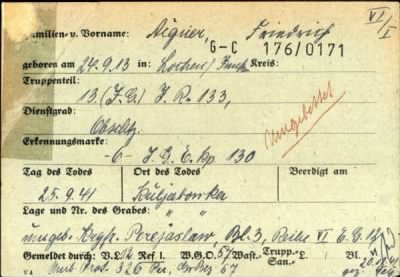 VI/I
Familien- u. Vorname: Aigner, Friedrich
G-C 176/0171
geboren am 24.9.13 in: Lochen/ Kreis:
Truppenteil:
13.(I.G.) I.R. 133,
Dienstgrad:
Obschtz.
Erkennungsmarke: umgebettet
-6- I.G.E.Kp 130
Tag des Todes Ort des Todes Beerdigt am
25.9.41 Kuljabowka
Lage und Nr. des Grabes: " "
umgeb. Krgfr. Perejaslaw, Bl. 3, Reihe VI E.G. 13
Gemeldet durch: V.L. Ref 1. W.G.O. 57 Wast. Trupp. L. Bl.
San.
326
57